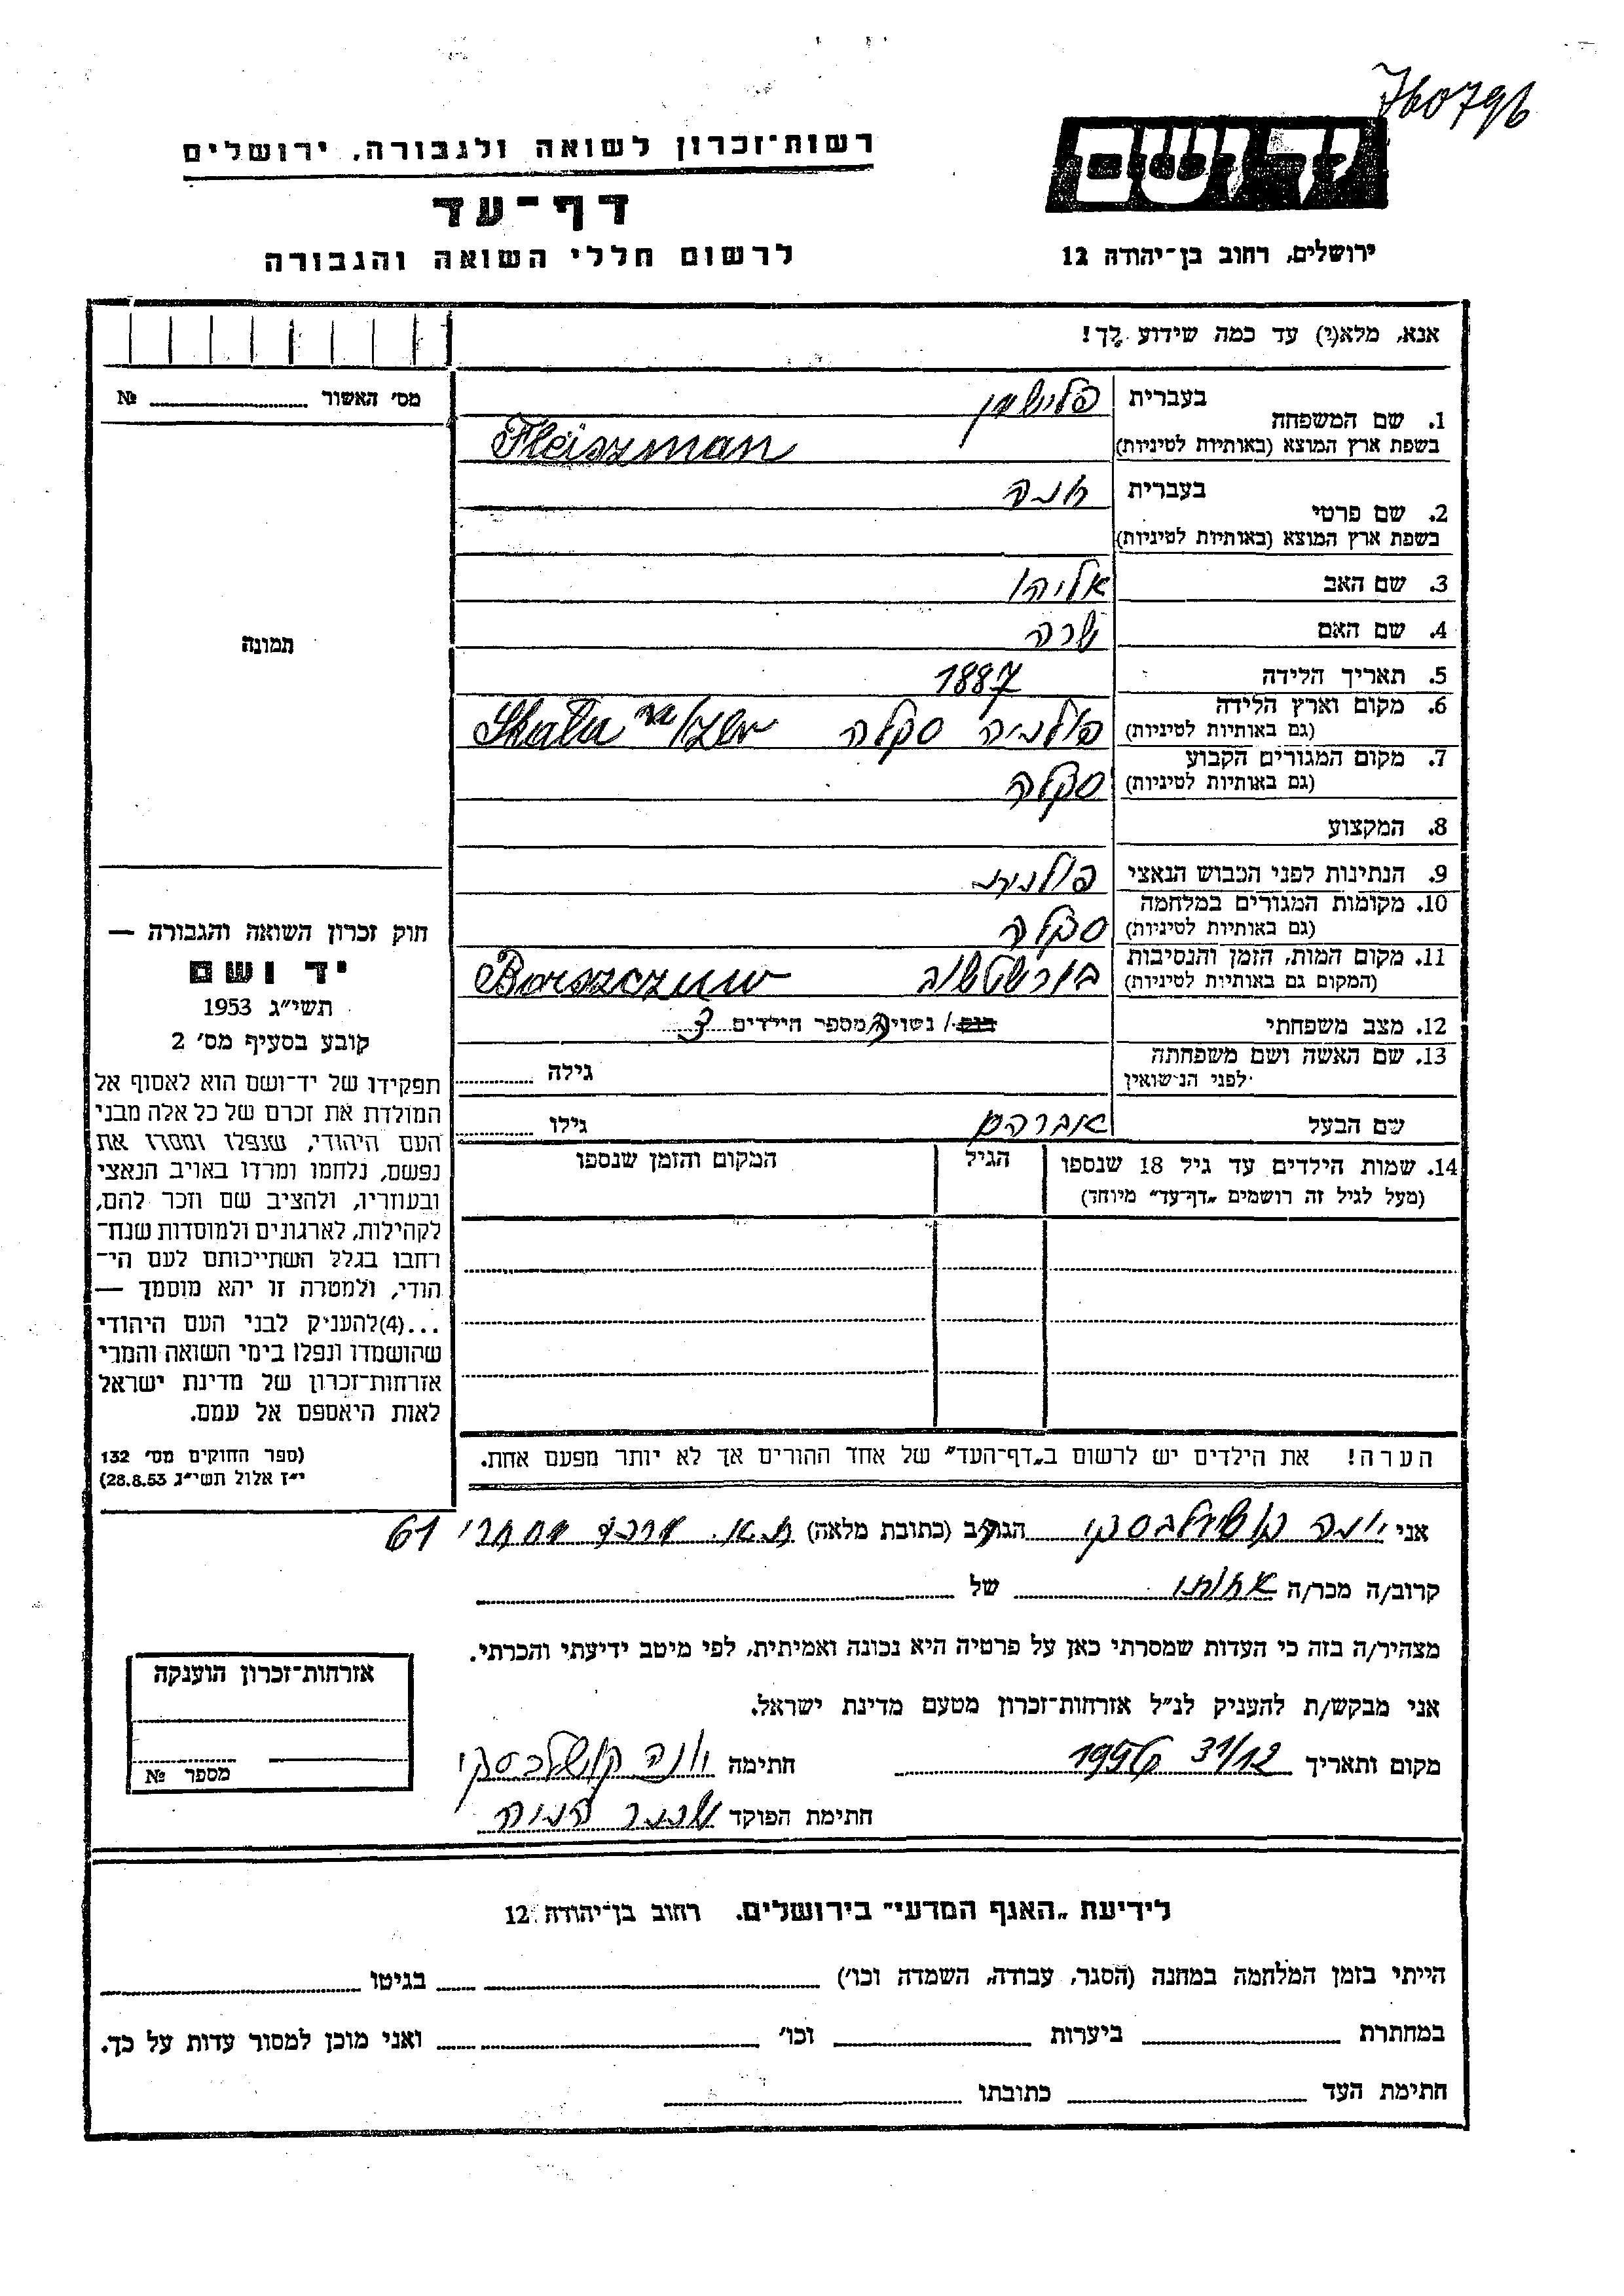 760796
רשות־זכרון לשואה ולגבורה, ירושלים
דף־עד
לרשום חללי השואה והגבורה
ידושם
ירושלים, רחוב בן־יהודה 12
אנא, מלא(י) עד כמה שידוע לך!
מס' האשור № ........
תמונה
1. שם המשפחה
בעברית פליישמן
בשפת ארץ המוצא (באותיות לטיניות) Fleiszman
2. שם פרטי
בעברית חנה
בשפת ארץ המוצא (באותיות לטיניות)
3. שם האב אליהו
4. שם האם שרה
5. תאריך הלידה 1887
6. מקום וארץ הלידה
(גם באותיות לטיניות) פולניה סקלה Skała n/Zbr
7. מקום המגורים הקבוע
(גם באותיות לטיניות) סקלה
8. המקצוע
9. הנתינות לפני הכבוש הנאצי פולנית
10. מקומות המגורים במלחמה
(גם באותיות לטיניות) סקלה
11. מקום המות, הזמן והנסיבות
(המקום גם באותיות לטיניות) בורשטשוב Borszczuw
12. מצב משפחתי רוק/ נשוי/ה מספר הילדים 3
13. שם האשה ושם משפחתה
לפני הנישואין
גילה ........
שם הבעל אברהם גילו ........
14. שמות הילדים עד גיל 18 שנספו
(מעל לגיל זה רושמים „דף־עד" מיוחד)
הגיל
המקום והזמן שנספו
הערה! את הילדים יש לרשום ב„דף־העד" של אחד ההורים אך לא יותר מפעם אחת.
חוק זכרון השואה והגבורה —
יד ושם
תשי"ג 1953
קובע בסעיף מס' 2
תפקידו של יד־ושם הוא לאסוף אל
המולדת את זכרם של כל אלה מבני
העם היהודי, שנפלו ומסרו את
נפשם, נלחמו ומרדו באויב הנאצי
ובעוזריו, ולהציב שם וזכר להם,
לקהילות, לארגונים ולמוסדות שנח־
רחבו בגלל השתייכותם לעם הי־
הודי, ולמטרה זו יהא מוסמך —
...(4)להעניק לבני העם היהודי
שהושמדו ונפלו בימי השואה והמרי
אזרחות־זכרון של מדינת ישראל
לאות היאספם אל עמם.
(ספר החוקים מס' 132
י"ז אלול תשי"ג 28.8.53)
אני יונה הגר/ה ב (כתובת מלאה) ת.א. מרכז מסחרי 61
קרוב/ה מכר/ה אחותו של ........
מצהיר/ה בזה כי העדות שמסרתי כאן על פרטיה היא נכונה ואמיתית, לפי מיטב ידיעתי והכרתי.
אני מבקש/ת להעניק לנ"ל אזרחות־זכרון מטעם מדינת ישראל.
מקום ותאריך 31/12 1956 חתימה יונה
חתימת הפוקד
אזרחות־זכרון הוענקה
מספר №
לידיעת „האגף המדעי" בירושלים. רחוב בן־יהודה 12
הייתי בזמן המלחמה במחנה (הסגר, עבודה, השמדה וכו') ........ בגיטו ........
במחתרת ........ ביערות ........ וכו' ........ ואני מוכן למסור עדות על כך.
חתימת העד ........ כתובתו ........